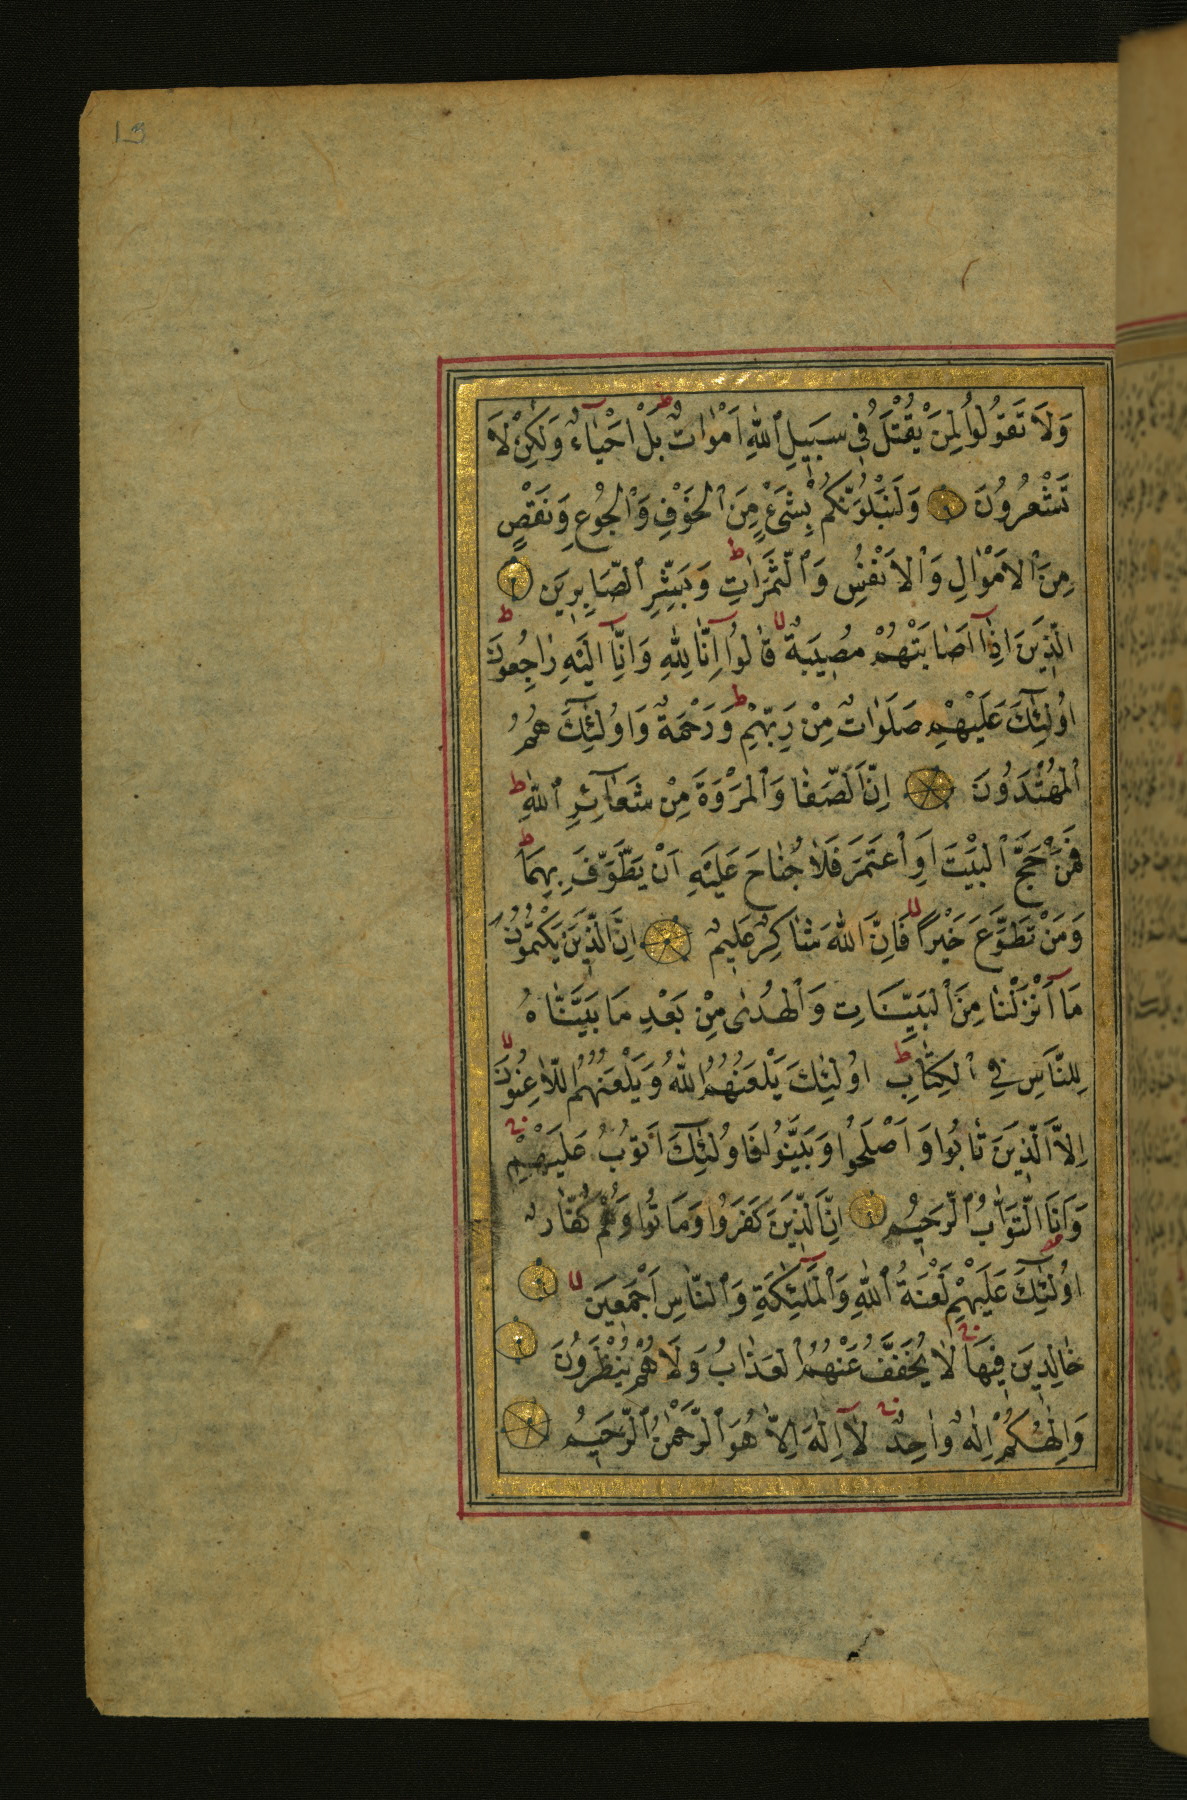 13
وَلَا تَقُولُوا لِمَنْ يُقْتَلُ فِي سَبِيلِ ٱللّٰهِ اَمْوَاتٌ ط بَلْ اَحْيَآءٌ وَلٰكِنْ لَا
تَشْعُرُونَ وَلَنَبْلُوَنَّكُمْ بِشَيْءٍ مِنَ ٱلْخَوْفِ وَٱلْجُوعِ وَنَقْصٍ
مِنَ ٱلْاَمْوَالِ وَٱلْاَنْفُسِ وَٱلثَّمَرَاتِ ط وَبَشِّرِ ٱلصَّابِرِينَ
الَّذِينَ اِذَآ اَصَابَتْهُمْ مُصِيبَةٌ لا قَالُوا اِنَّا لِلّٰهِ وَاِنَّآ اِلَيْهِ رَاجِعُونَ ط
اُولٰٓئِكَ عَلَيْهِمْ صَلَوَاتٌ مِنْ رَبِّهِمْ وَرَحْمَةٌ ط وَاُولٰٓئِكَ هُمُ
ٱلْمُهْتَدُونَ اِنَّ ٱلصَّفَا وَٱلْمَرْوَةَ مِنْ شَعَآئِرِ ٱللّٰهِ ط
فَمَنْ حَجَّ ٱلْبَيْتَ اَوِ ٱعْتَمَرَ فَلَا جُنَاحَ عَلَيْهِ اَنْ يَطَّوَّفَ بِهِمَا ط
وَمَنْ تَطَوَّعَ خَيْرًا لا فَاِنَّ اللّٰهَ شَاكِرٌ عَلِيمٌ اِنَّ الَّذِينَ يَكْتُمُونَ
مَآ اَنْزَلْنَا مِنَ ٱلْبَيِّنَاتِ وَٱلْهُدٰى مِنْ بَعْدِ مَا بَيَّنَّاهُ
لِلنَّاسِ فِي ٱلْكِتَابِ ط اُولٰئِكَ يَلْعَنُهُمُ اللّٰهُ وَيَلْعَنُهُمُ اللَّاعِنُونَ لا
اِلَّا الَّذِينَ تَابُوا وَاَصْلَحُوا وَبَيَّنُوا فَاُولٰٓئِكَ اَتُوبُ عَلَيْهِمْ ج
وَاَنَا التَّوَّابُ ٱلرَّحِيمُ اِنَّ الَّذِينَ كَفَرُوا وَمَاتُوا وَهُمْ كُفَّارٌ
اُولٰٓئِكَ عَلَيْهِمْ لَعْنَةُ ٱللّٰهِ وَٱلْمَلٰٓئِكَةِ وَٱلنَّاسِ اَجْمَعِينَ لا
خَالِدِينَ فِيهَا ج لَا يُخَفَّفُ عَنْهُمُ ٱلْعَذَابُ وَلَا هُمْ يُنْظَرُونَ
وَاِلٰهُكُمْ اِلٰهٌ وَاحِدٌ ج لَآ اِلٰهَ اِلَّا هُوَ ٱلرَّحْمٰنُ ٱلرَّحِيمُ